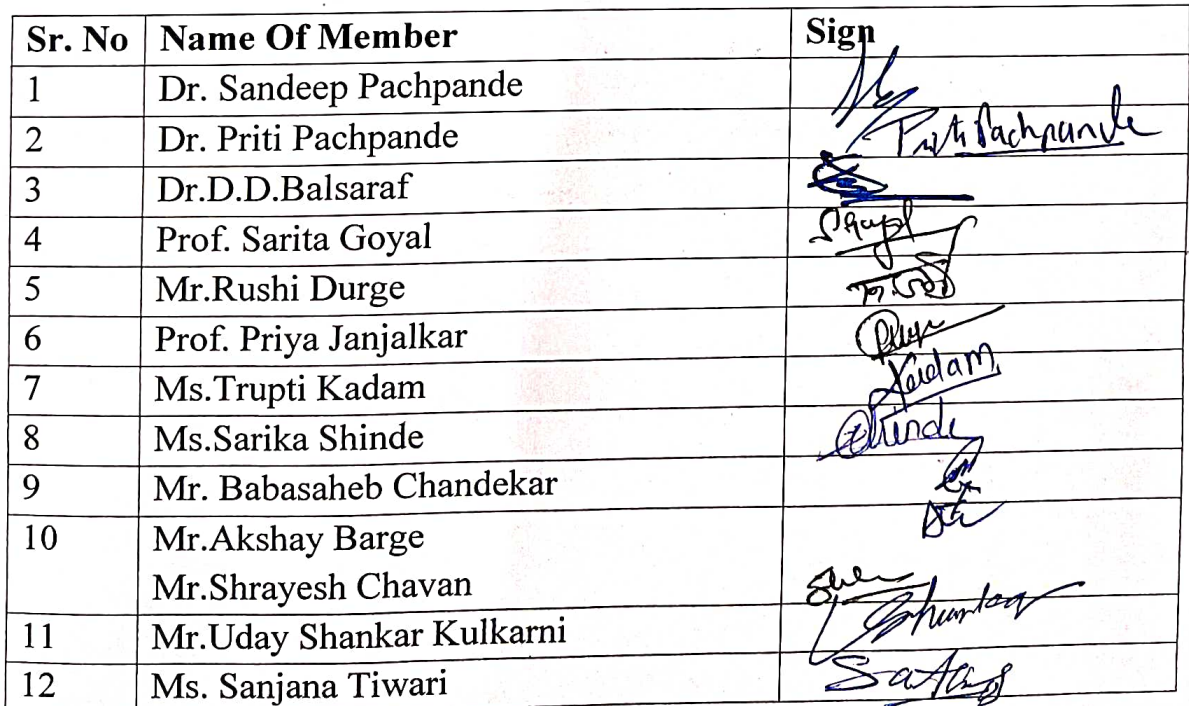 Sr. No Name Of Member Sign
1 Dr. Sandeep Pachpande
2 Dr. Priti Pachpande Priti Pachpande
3 Dr.D.D.Balsaraf
4 Prof. Sarita Goyal
5 Mr.Rushi Durge
6 Prof. Priya Janjalkar
7 Ms.Trupti Kadam Kadam
8 Ms.Sarika Shinde Shinde
9 Mr. Babasaheb Chandekar
10 Mr.Akshay Barge
Mr.Shrayesh Chavan
11 Mr.Uday Shankar Kulkarni
12 Ms. Sanjana Tiwari